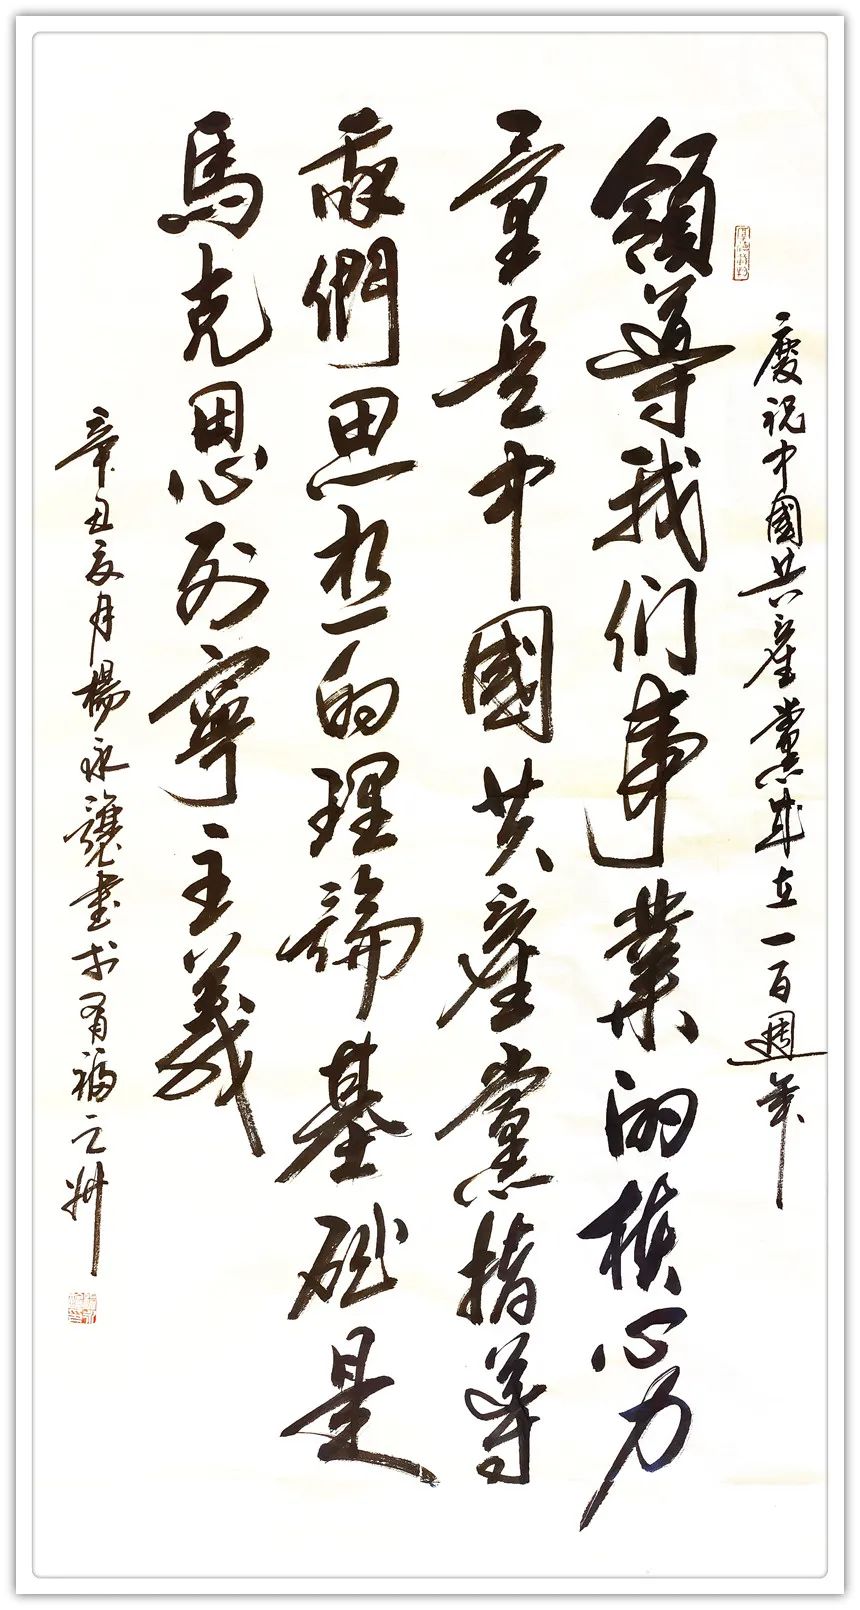 慶祝中國共產黨成立一百週年
領導我们事業的核心力
量是中國共產黨指導
我們思想的理論基础是
馬克思列寧主義
辛丑夏月楊永讓書於有福之州